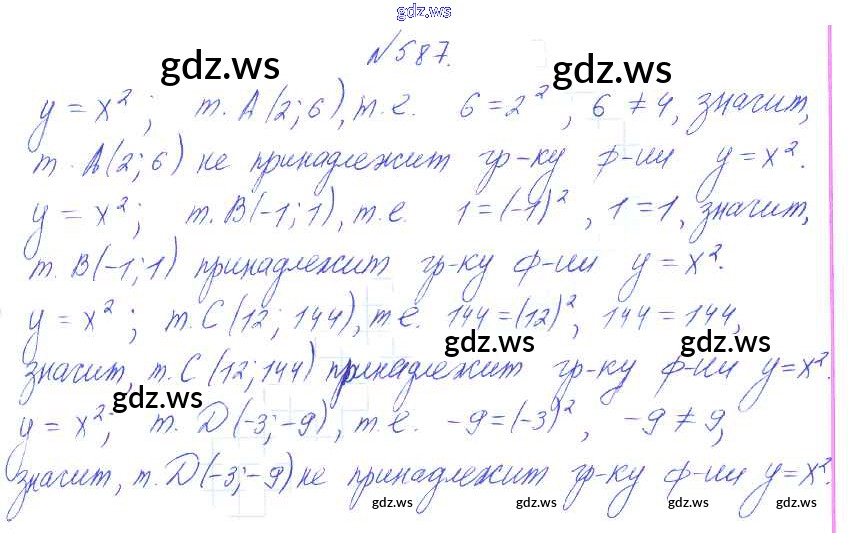 gdz.ws
№587.
gdz.ws gdz.ws
y = x²; т. A(2; 6), т.е. 6 = 2², 6 ≠ 4, значит,
т. A(2; 6) не принадлежит гр-ку ф-ии y = x².
y = x²; т. B(-1; 1), т.е. 1 = (-1)², 1 = 1, значит,
т. B(-1; 1) принадлежит гр-ку ф-ии y = x².
y = x²; т. C(12; 144), т.е. 144 = (12)², 144 = 144,
gdz.ws gdz.ws
значит, т. C(12; 144) принадлежит гр-ку ф-ии y = x².
gdz.ws
y = x²; т. D(-3; -9), т.е. -9 = (-3)², -9 ≠ 9,
значит, т. D(-3; -9) не принадлежит гр-ку ф-ии y = x².
gdz.ws gdz.ws gdz.ws